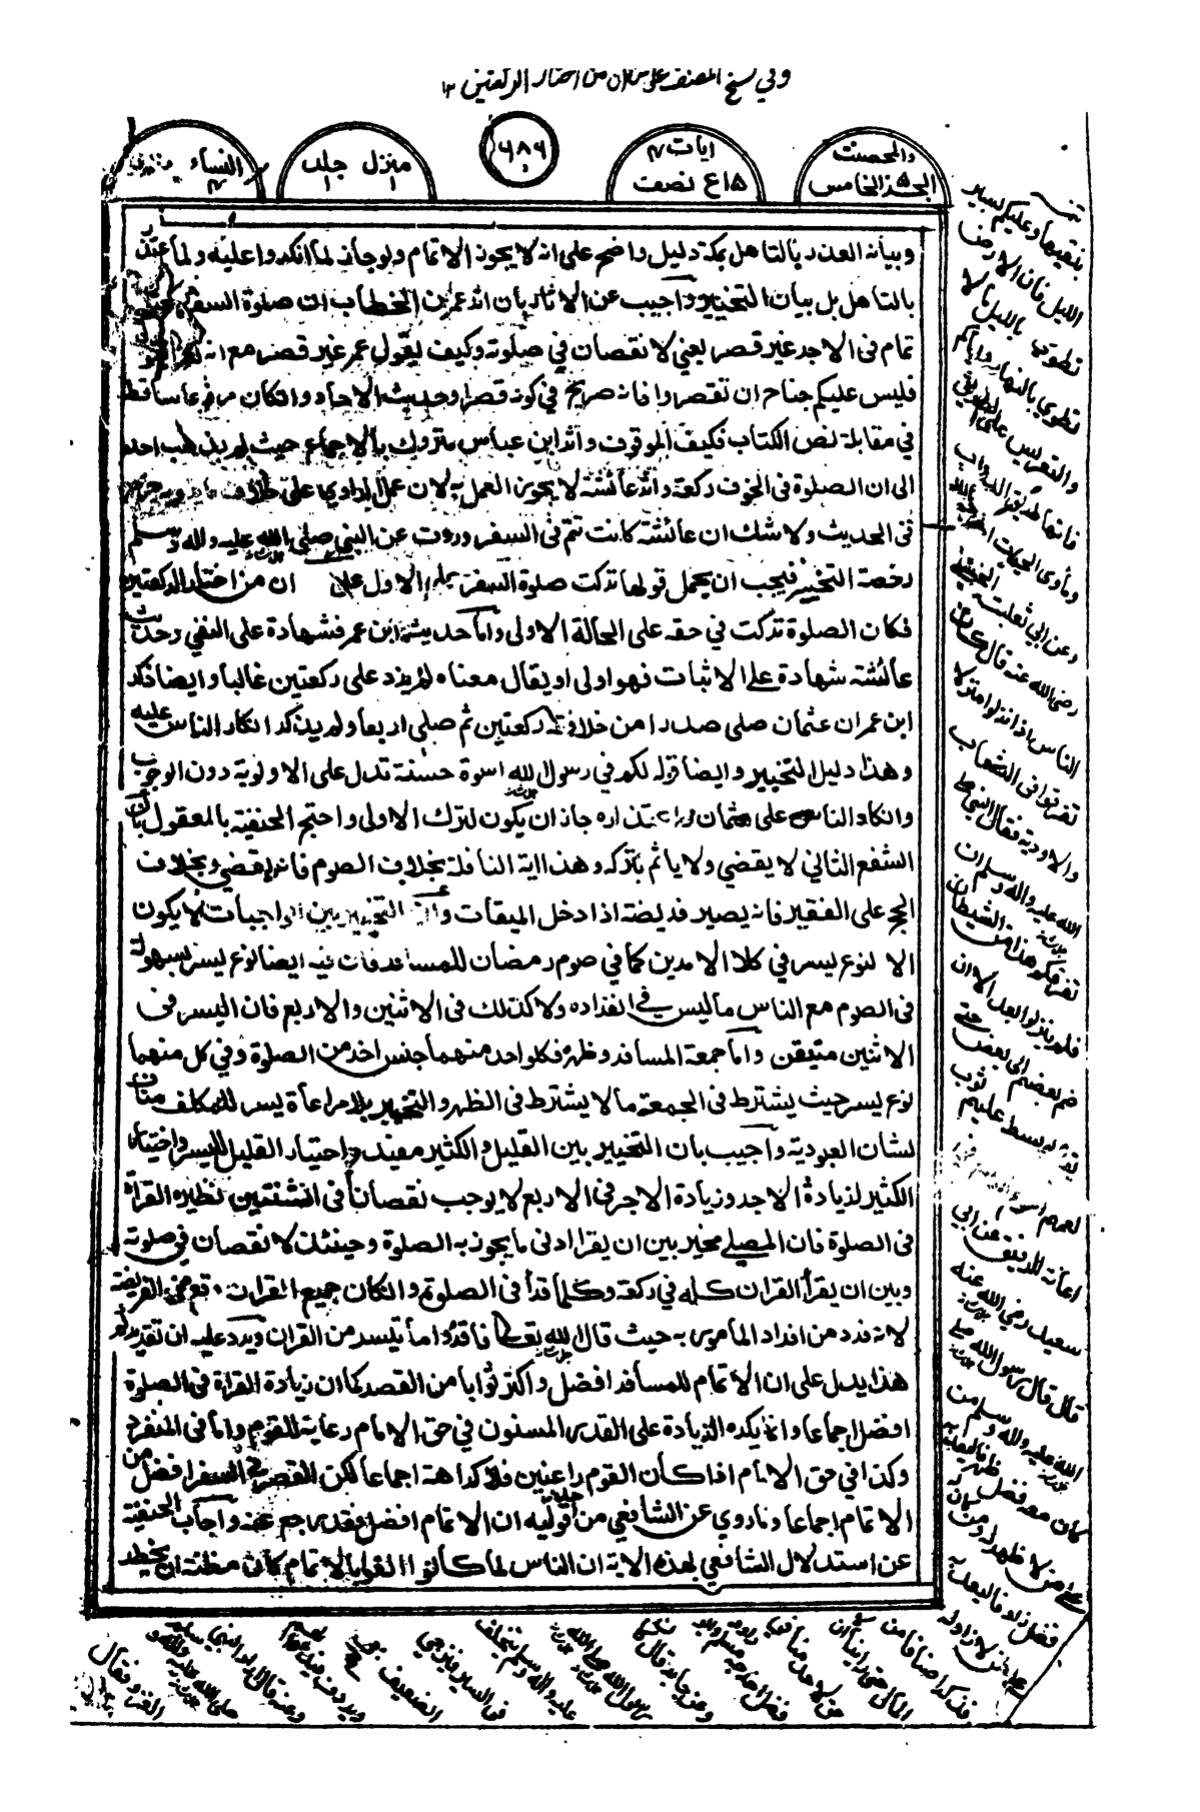 وفي نسخ المصنف على من اختار الركعتين ١٢
والمحصنت
الجزء الخامس
ايات
١٥ع نصف
٦٨٩
منزل جلد
١ ١
النساء
٤
وبيانه العذر بالتاهل بمكة دليل واضح على انه لا يجوز الاتمام ولو جاز لما انكروا عليه ولما اعتذر
بالتاهل بل بيان التخيير واجيب عن الاثار بان اثر عمر بن الخطاب ان صلوة السفر
تمام فى الاجر غير قصر يعني لا نقصان في صلوته وكيف يقول عمر غير قصر مع انه
فليس عليكم جناح ان تقصروا فانه صريح في كونه قصرا وحديث الاحاد وانكان مرفوعا ساقط
في مقابلة نص الكتاب فكيف الموقوف واثر ابن عباس متروك بالاجماع حيث لم يذهب احد
الى ان الصلوة فى الخوف ركعة واثر عائشة لا يجوز العمل به لان عمل الراوي على خلاف
فى الحديث ولا شك ان عائشة كانت تتم فى السفر وروت عن النبي صلى الله عليه واله وسلم
رخصة التخيير فيجب ان يحمل قولها تركت صلوة السفر على الاول على ان من اختار الركعتين
فكان الصلوة تركت في حقه على الحالة الاولى واما حديث ابن عمر فشهادة على النفي وحديث
عائشة شهادة على الاثبات فهو اولى او يقال معناه لم يزد على ركعتين غالبا وايضا ذكر
ابن عمر ان عثمان صلى صدرا من خلافته ركعتين ثم صلى اربعا ولم يذكر انكار الناس عليه
وهذا دليل التخيير وايضا قوله لكم في رسول الله اسوة حسنة تدل على الاولوية دون الوجوب
وانكار الناس على عثمان واعتذاره جاز ان يكون لترك الاولى واحتج الحنفية بالمعقول بان
الشفع الثاني لا يقضي ولا ياثم بتركه وهذا اية النافلة بخلاف الصوم فانه يقضي وبخلاف
الحج على الفقير فانه يصير فريضة اذا دخل الميقات وان التخيير بين الواجبات لا يكون
الا لنوع يسر في كلا الامرين كما في صوم رمضان للمسافر فان فيه ايضا نوع يسر لسهولة
فى الصوم مع الناس ما ليس في انفراده ولا كذلك فى الاثنين والاربع فان اليسر فى
الاثنين متيقن واما جمعة المسافر وظهره فكلواحد منهما جنس اخر من الصلوة وفي كل منهما
نوع يسر حيث يشترط فى الجمعة ما لا يشترط فى الظهر والتخيير بلا مراعاة يسر للمكلف مناف
لشان العبودية واجيب بان التخيير بين القليل والكثير مفيد واختيار القليل لليسر واختيار
الكثير لزيادة الاجر وزيادة الاجر فى الاربع لا يوجب نقصانا فى الثنتين نظيره القراة
فى الصلوة فان المصلى مخير بين ان يقرا ادنى ما يجوز به الصلوة وحينئذ لا نقصان في صلوته
وبين ان يقرأ القران كله في ركعة وكلما قرأ فى الصلوة وانكان جميع القران وقع عن الفريضة
لانه فرد من افراد المامور به حيث قال الله تعالى فاقرؤا ما تيسر من القران ويرد عليه ان تقديركم
هذا يدل على ان الاتمام للمسافر افضل واكثر ثوابا من القصر كما ان زيادة القراة فى الصلوة
افضل اجماعا وانما يكره الزيادة على القدر المسنون في حق الامام رعاية للقوم واما فى المنفرد
وكذا في حق الامام اذا كان القوم راغبين فلا كراهة اجماعا لكن القصر فى السفر افضل من
الاتمام اجماعا وما روي عن الشافعي من قوليه ان الاتمام افضل فقد رجع عنه واجاب الحنفية
عن استدلال الشافعي بهذه الاية ان الناس لما كانوا الفوا بالاتمام كان مظنة ان يخطر
بنقيها وعليكم بسير
الليل فان الارض
تطوى بالليل ما لا
تطوي بالنهار واياكم
والتعريس على الطريق
فانها طريق الدواب
ومأوى الحيات
وعن ابي ثعلبة الخشني
رضى الله عنه قال كان
الناس اذا نزلوا منزلا
تفرقوا فى الشعاب
والاودية فقال النبي صلى
الله عليه واله وسلم ان
تفرقكم هذا من الشيطان
فلم ينزلوا بعد الا ان
ضم بعضهم الى بعض حتى
لو بسط عليهم ثوب
لعمهم
اعانة للرفيق عن ابي
سعيد رضي الله عنه
قال قال رسول الله صلى
الله عليه واله وسلم من
كان معه فضل ظهر فليعد به
على من لا ظهر له ومن كان له
فضل زاد فاليعد به
على من لا زاد له
فذكر اصنافا من
المال حتى راينا ان
لا حق لاحد منا في
فضل اخرجه مسلم
وعن جابر قال كان
رسول الله صلى الله
عليه واله وسلم يتخلف
فى السير فيزجي
الضعيف
ويردف ويدعو لهم
وعنه قال اراد النبي
صلى الله عليه واله وسلم
الغزو فقال